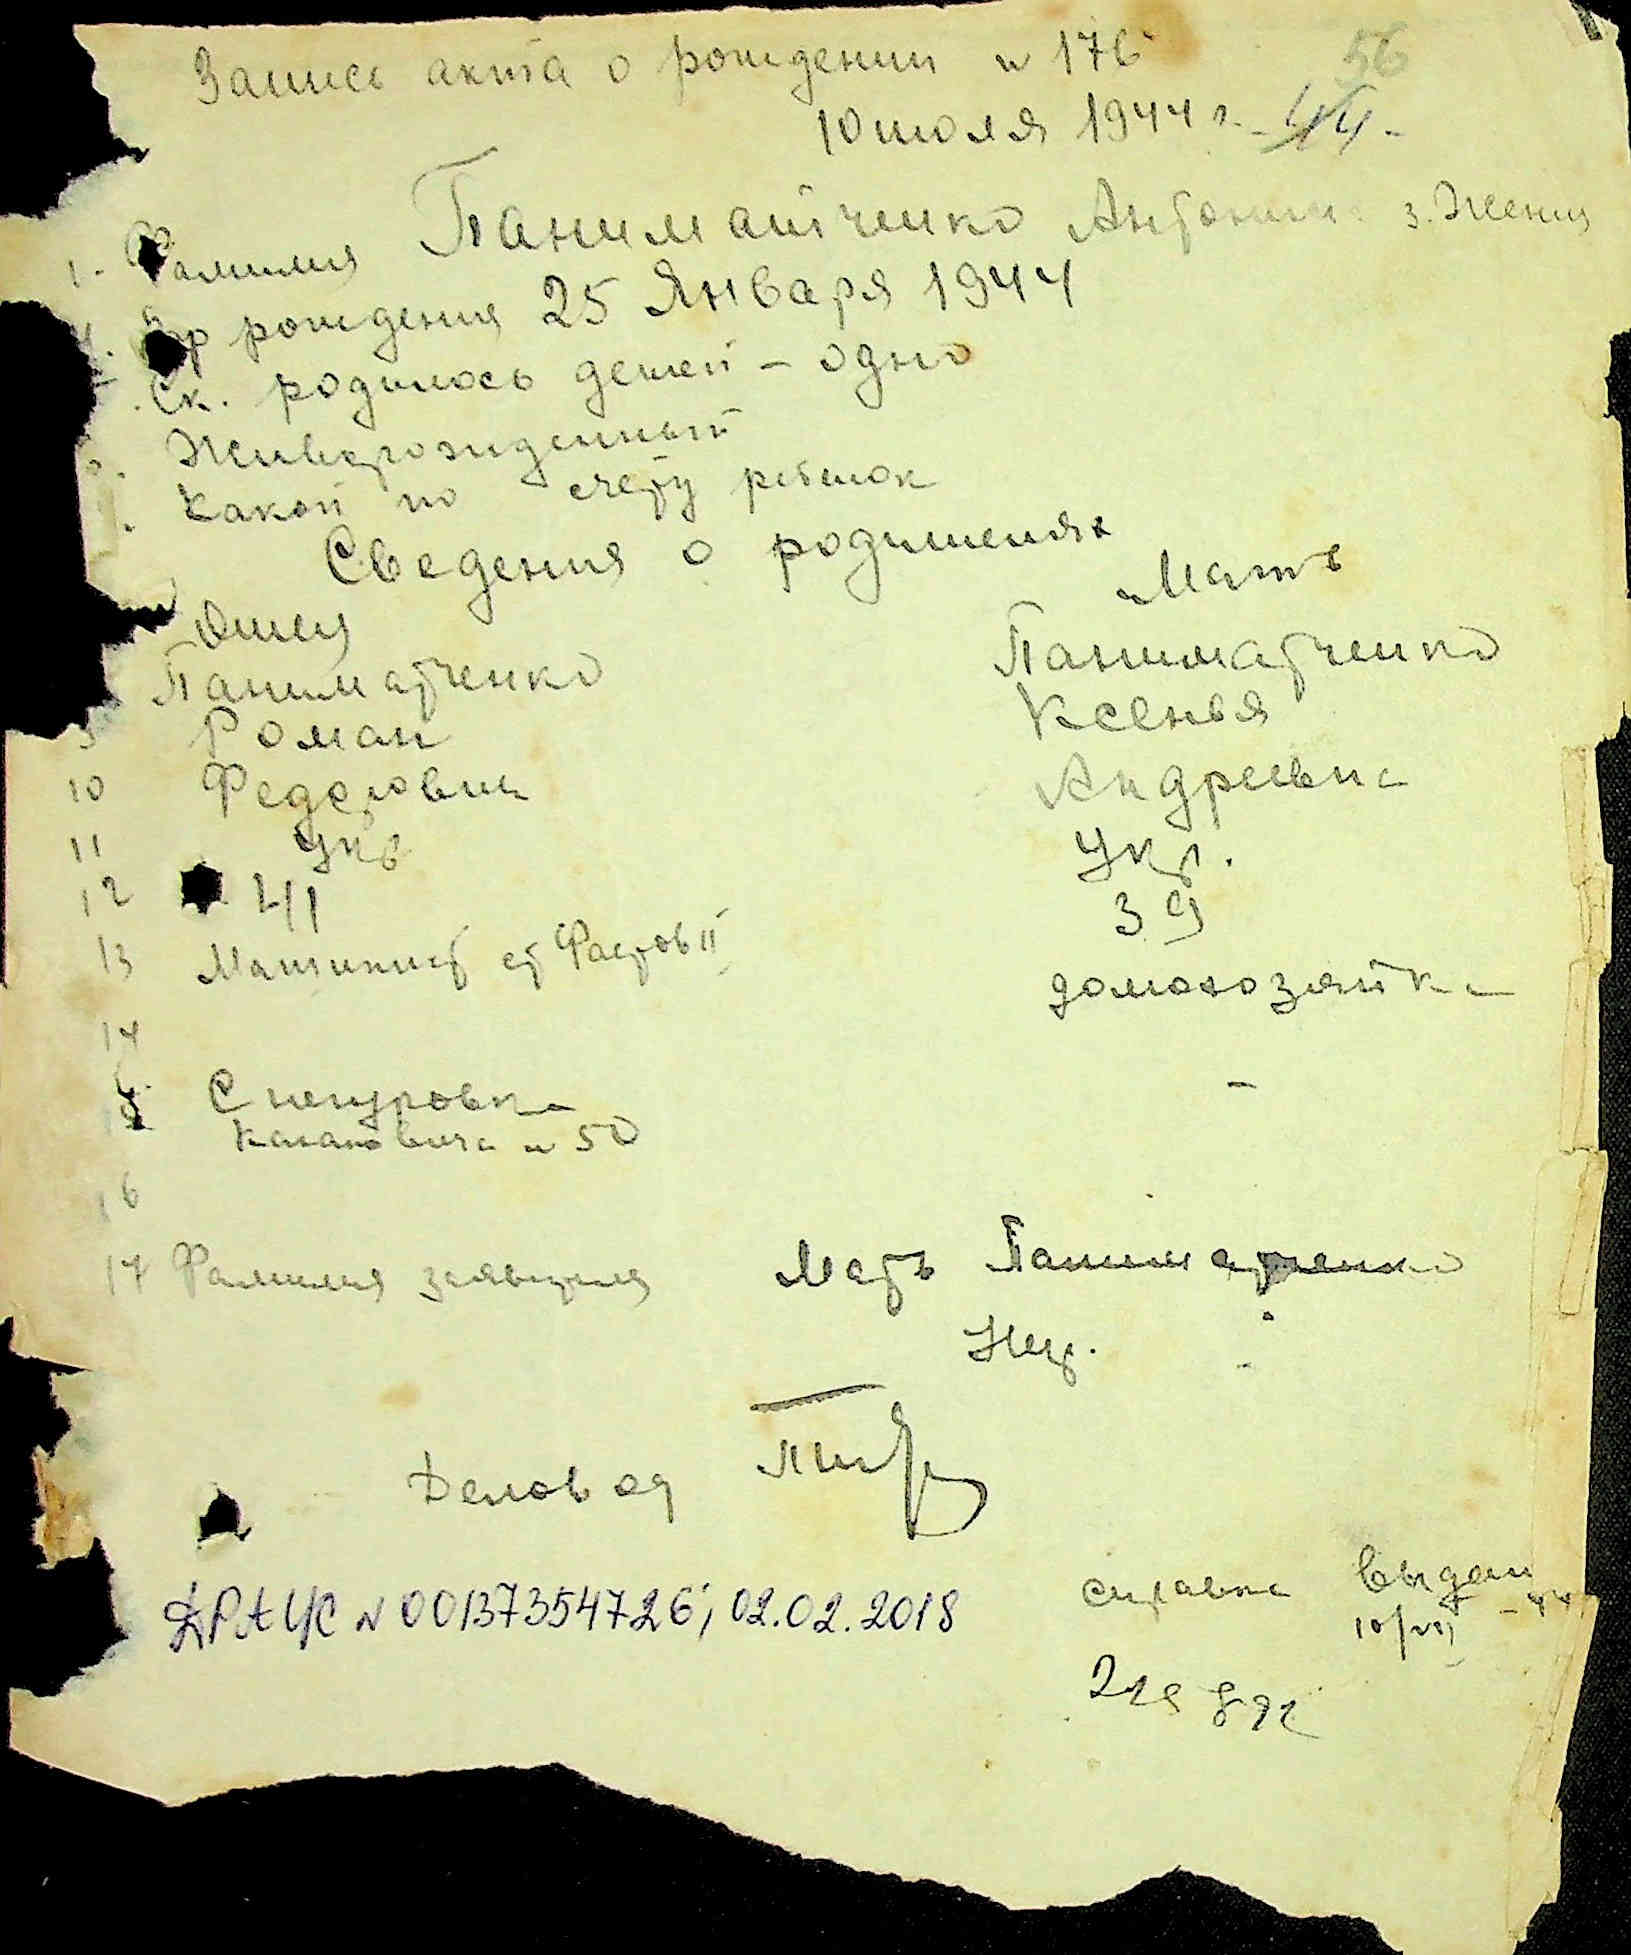 Запись акта о рождении № 176
56
10 июля 1944 г. 44
1. Фамилия Паниматченко Антонина 3. Жения
Вр рождения 25 Января 1944
Ск. родилось детей – одно
Живорожденный
Какой по счету ребенок
Сведения о родителях
Отец Мать
Паниматченко Паниматченко
9 Роман Ксенья
10 Федорович Андреевна
11 Укр Укр.
12 41 39
13 Машинист ст Фастов II домохозяйка
14
15 Снегуровка –
Кагановича № 50
16
17 Фамилия заявителя Мать Паниматченко
Деловод
ДРАЦС № 00137354726; 02.02.2018
справка выдан
10/VII – 44